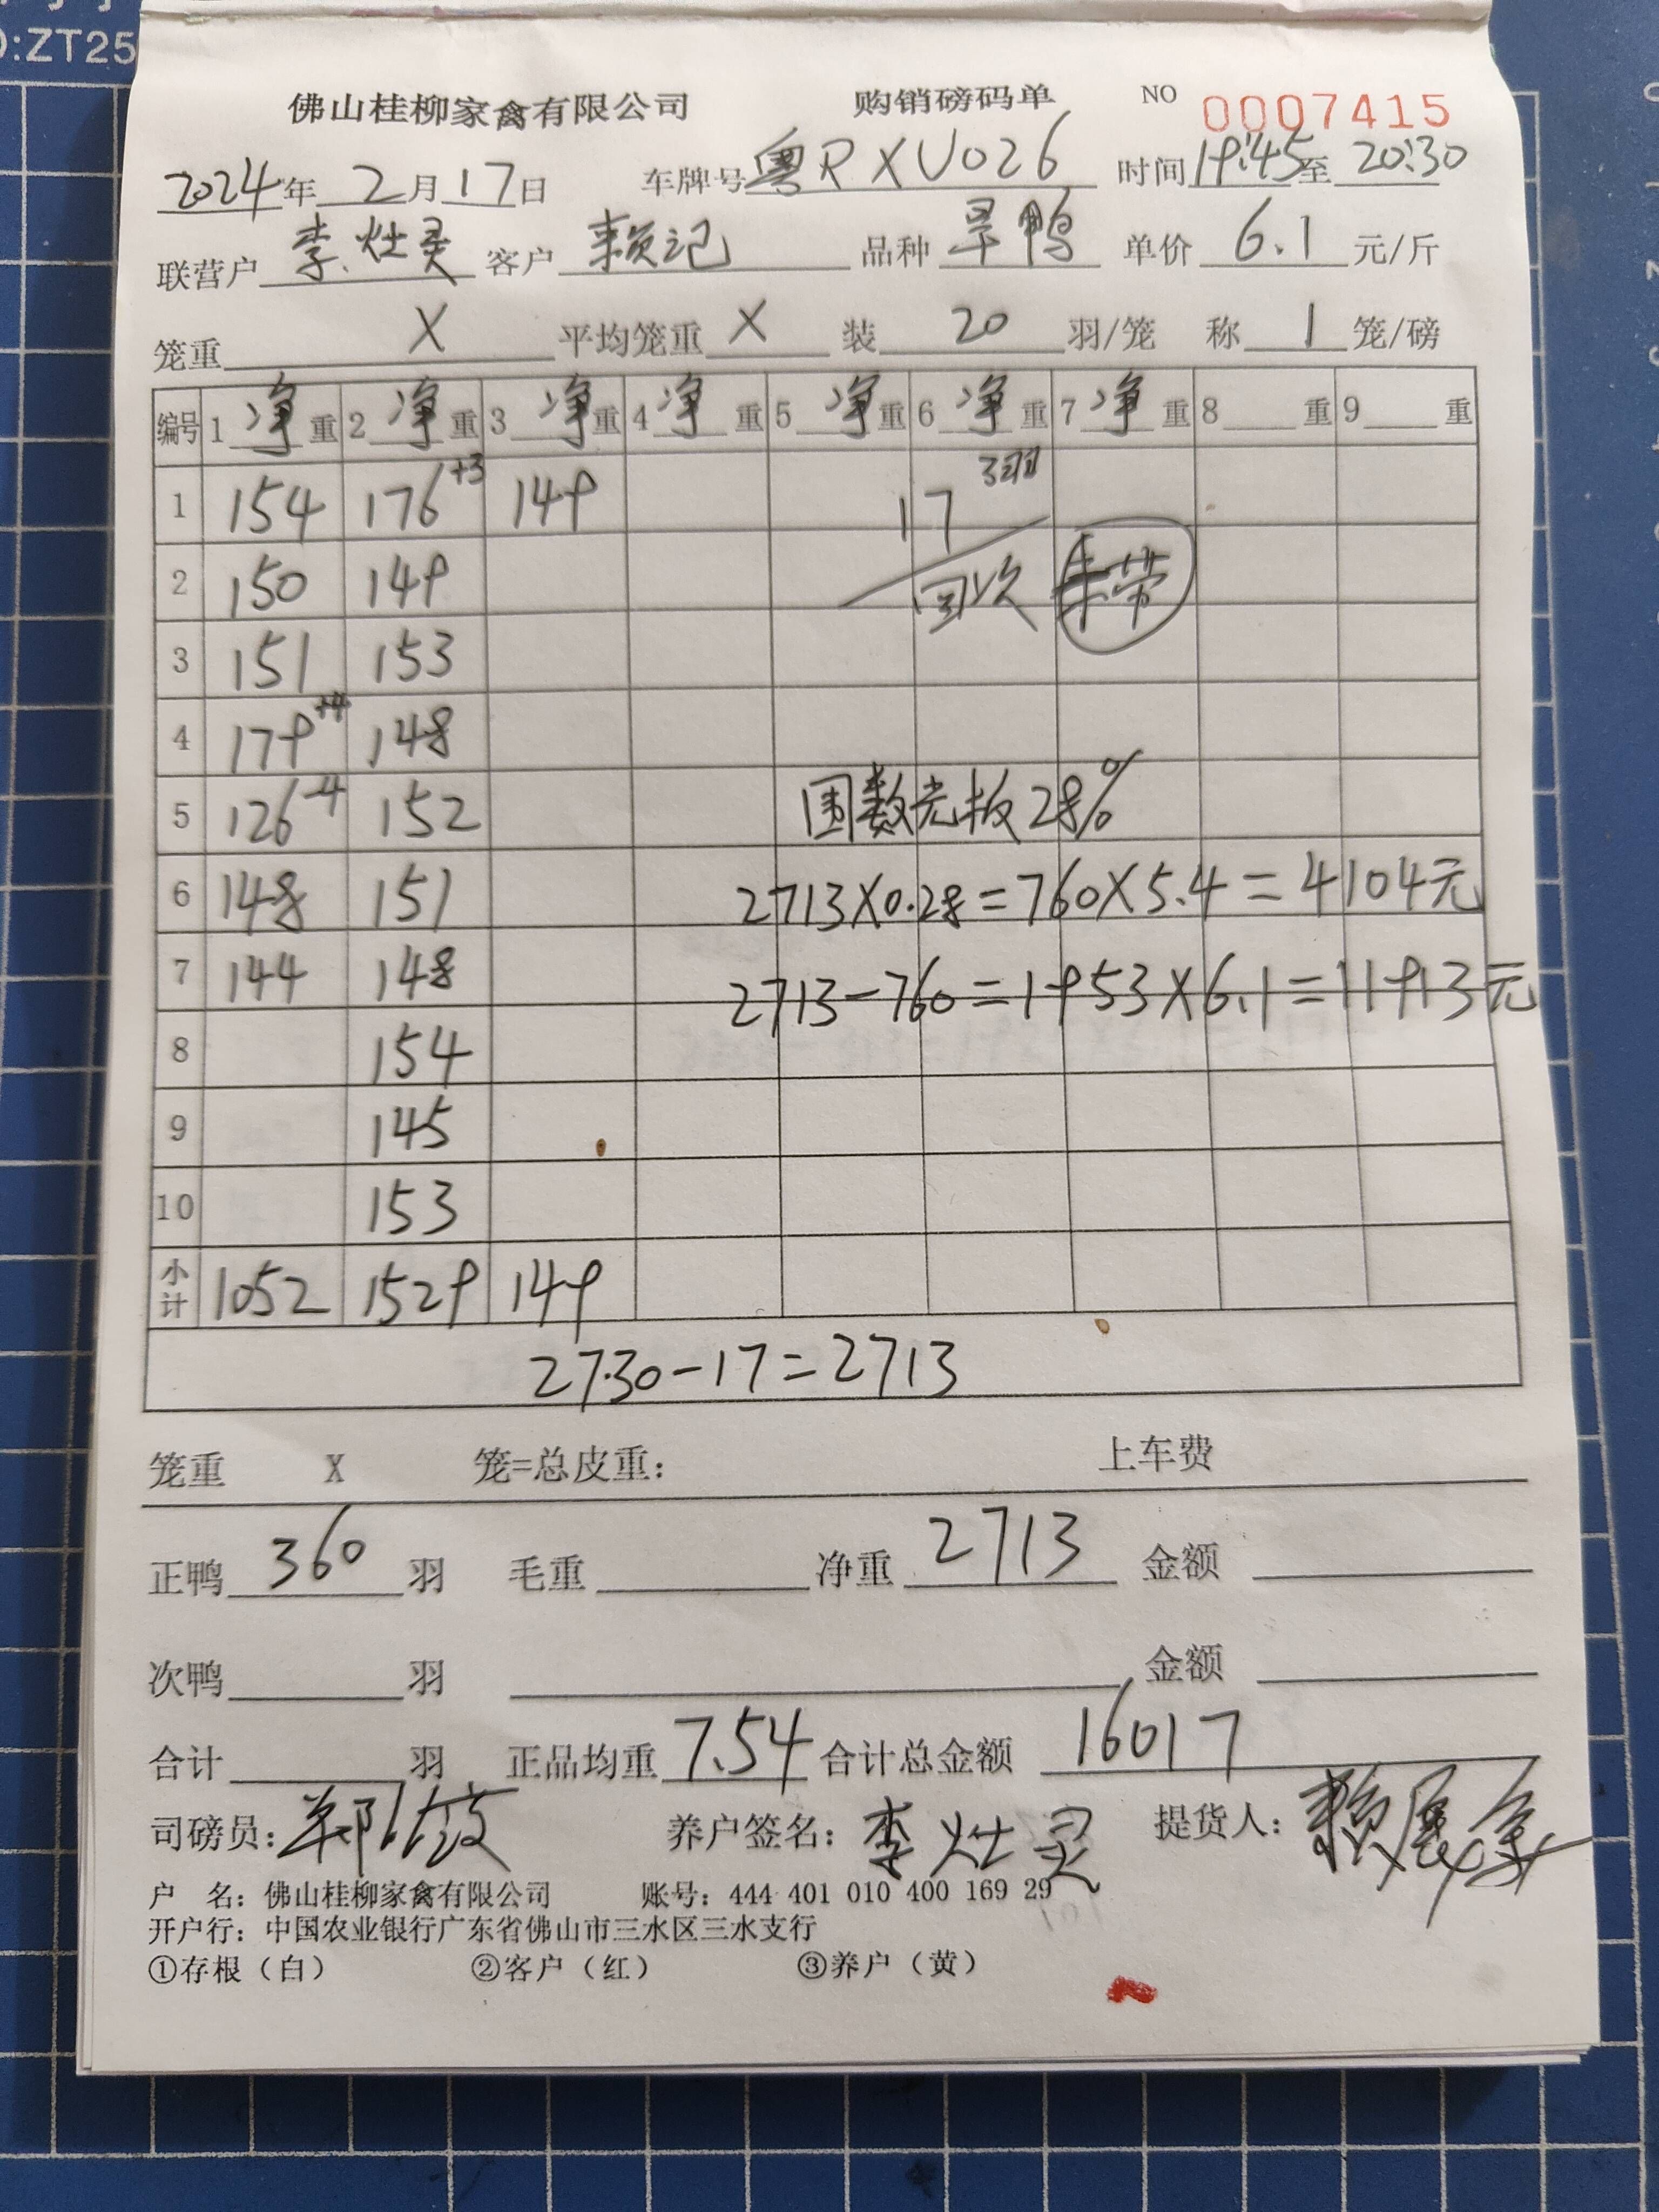 D:ZT25
佛山桂柳家禽有限公司 购销磅码单 NO 0007415
2024年 2月17日 车牌号粤RXU026 时间19:45至20:30
联营户李灶灵 客户赖记 品种旱鸭 单价6.1元/斤
笼重X平均笼重X装20羽/笼 称1笼/磅
编号 1净重 2净重 3净重 4净重 5净重 6净重 7净重 8重 9重
1 154 176+3 149 17 3羽
2 150 149 回次 未带
3 151 153
4 179+4 148
5 126-4 152 围数光板28%
6 148 151 2713X0.28=760X5.4=4104元
7 144 148 2713-760=1953X6.1=11913元
8 154
9 145
10 153
小计 1052 1529 149
2730-17=2713
笼重 X 笼=总皮重: 上车费
正鸭360羽 毛重 净重2713 金额
次鸭 羽 金额
合计 羽 正品均重7.54合计总金额16017
司磅员: 养户签名:李灶灵 提货人:
户 名:佛山桂柳家禽有限公司 账号:444 401 010 400 169 29
开户行:中国农业银行广东省佛山市三水区三水支行
①存根(白) ②客户(红) ③养户(黄)